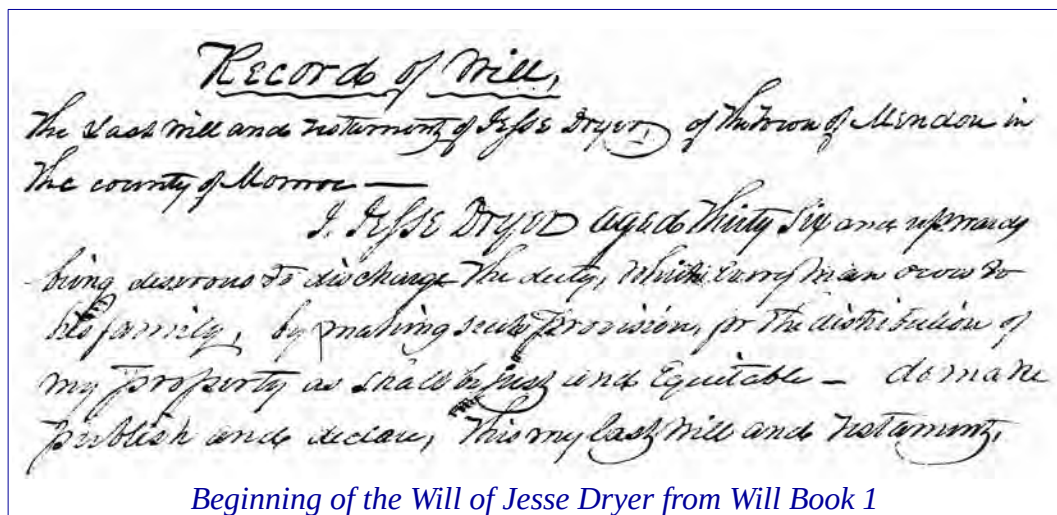 Record of Will,
The Last Will and Testament of Jesse Dryer, of the Town of Mendon in
the county of Monroe —
I, Jesse Dryer aged Thirty Six and upwards
being desirous to discharge the duty, which every man owes to
his family, by making such provision, for the distribution of
my property as shall be just and Equitable – do make
publish and declare, this my last Will and Testament,
Beginning of the Will of Jesse Dryer from Will Book 1